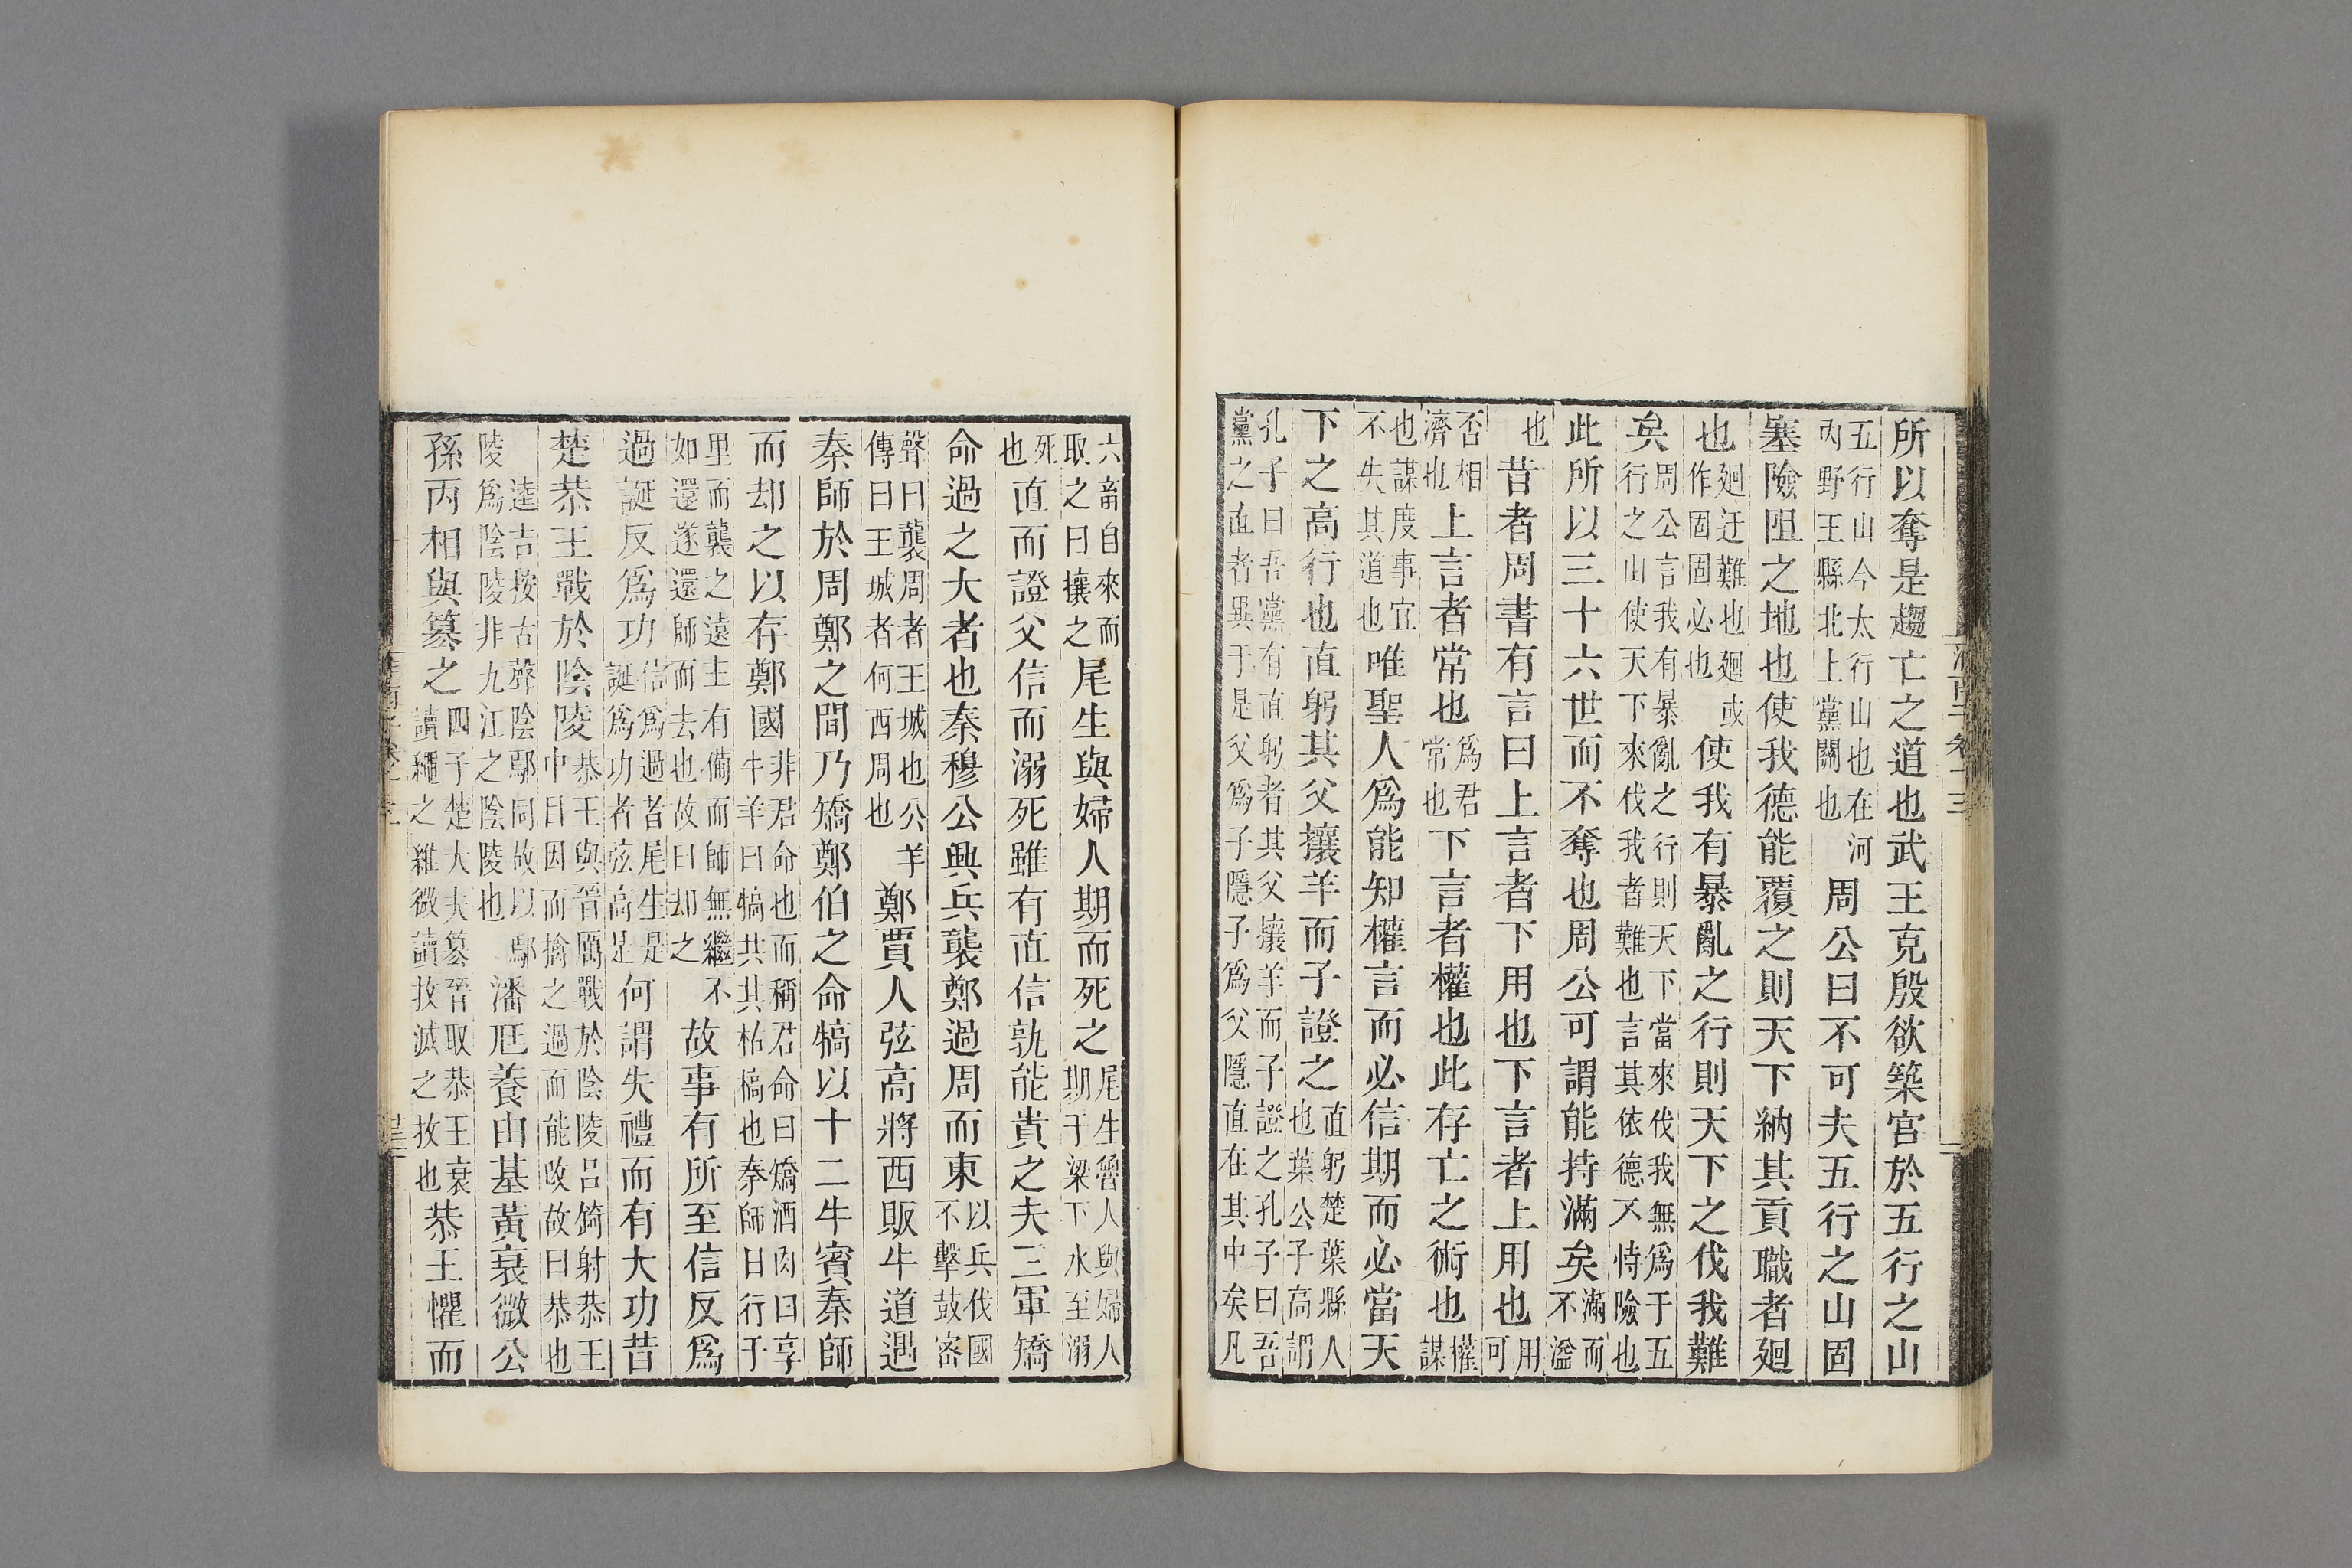 所以奪是趨亡之道也武王克殷欲築宮於五行之山
五行山今太行山也在河
內野王縣北上黨關也
周公曰不可夫五行之山固
塞險阻之地也使我德能覆之則天下納其貢職者廻
也
廻迂難也廻或
作固固必也
使我有暴亂之行則天下之伐我難
矣
周公言我有暴亂之行則天下當來伐我無爲于五
行之山使天下來伐我者難也言其依德不恃險也
此所以三十六世而不奪也周公可謂能持滿矣
滿而
不溢
也
昔者周書有言曰上言者下用也下言者上用也
用
可
否相
濟也
上言者常也
爲君
常也
下言者權也此存亡之術也
權
謀
也謀度事宜
不失其道也
唯聖人爲能知權言而必信期而必當天
下之高行也直躬其父攘羊而子證之
直躬楚葉縣人
也葉公子高謂
孔子曰吾黨有直躬者其父攘羊而子證之孔子曰吾
黨之直者異于是父爲子隱子爲父隱直在其中矣凡
六畜自來而
取之曰攘之
尾生與婦人期而死之
尾生魯人與婦人
期于梁下水至溺
死
也
直而證父信而溺死雖有直信孰能貴之夫三軍矯
命過之大者也秦穆公興兵襲鄭過周而東
以兵伐國
不擊鼓密
聲曰襲周者王城也公羊
傳曰王城者何西周也
鄭賈人弦高將西販牛道遇
秦師於周鄭之間乃矯鄭伯之命犒以十二牛賓秦師
而却之以存鄭國
非君命也而稱君命曰矯酒肉曰享
牛羊曰犒共其枯槁也秦師日行千
里而襲之遠主有備而師無繼不
如還遂還師而去也故曰却之
故事有所至信反爲
過誕反爲功
信爲過者尾生是
誕爲功者弦高是
何謂失禮而有大功昔
楚恭王戰於陰陵
恭王與晉厲戰於陰陵呂錡射恭王
中目因而擒之過而能改故曰恭也
逵吉按古聲陰鄢同故以鄢
陵爲陰陵非九江之陰陵也
潘尫養由基黃衰微公
孫丙相與篡之
四子楚大夫篡晉取恭王衰
讀繩之維微讀抆滅之抆也
恭王懼而